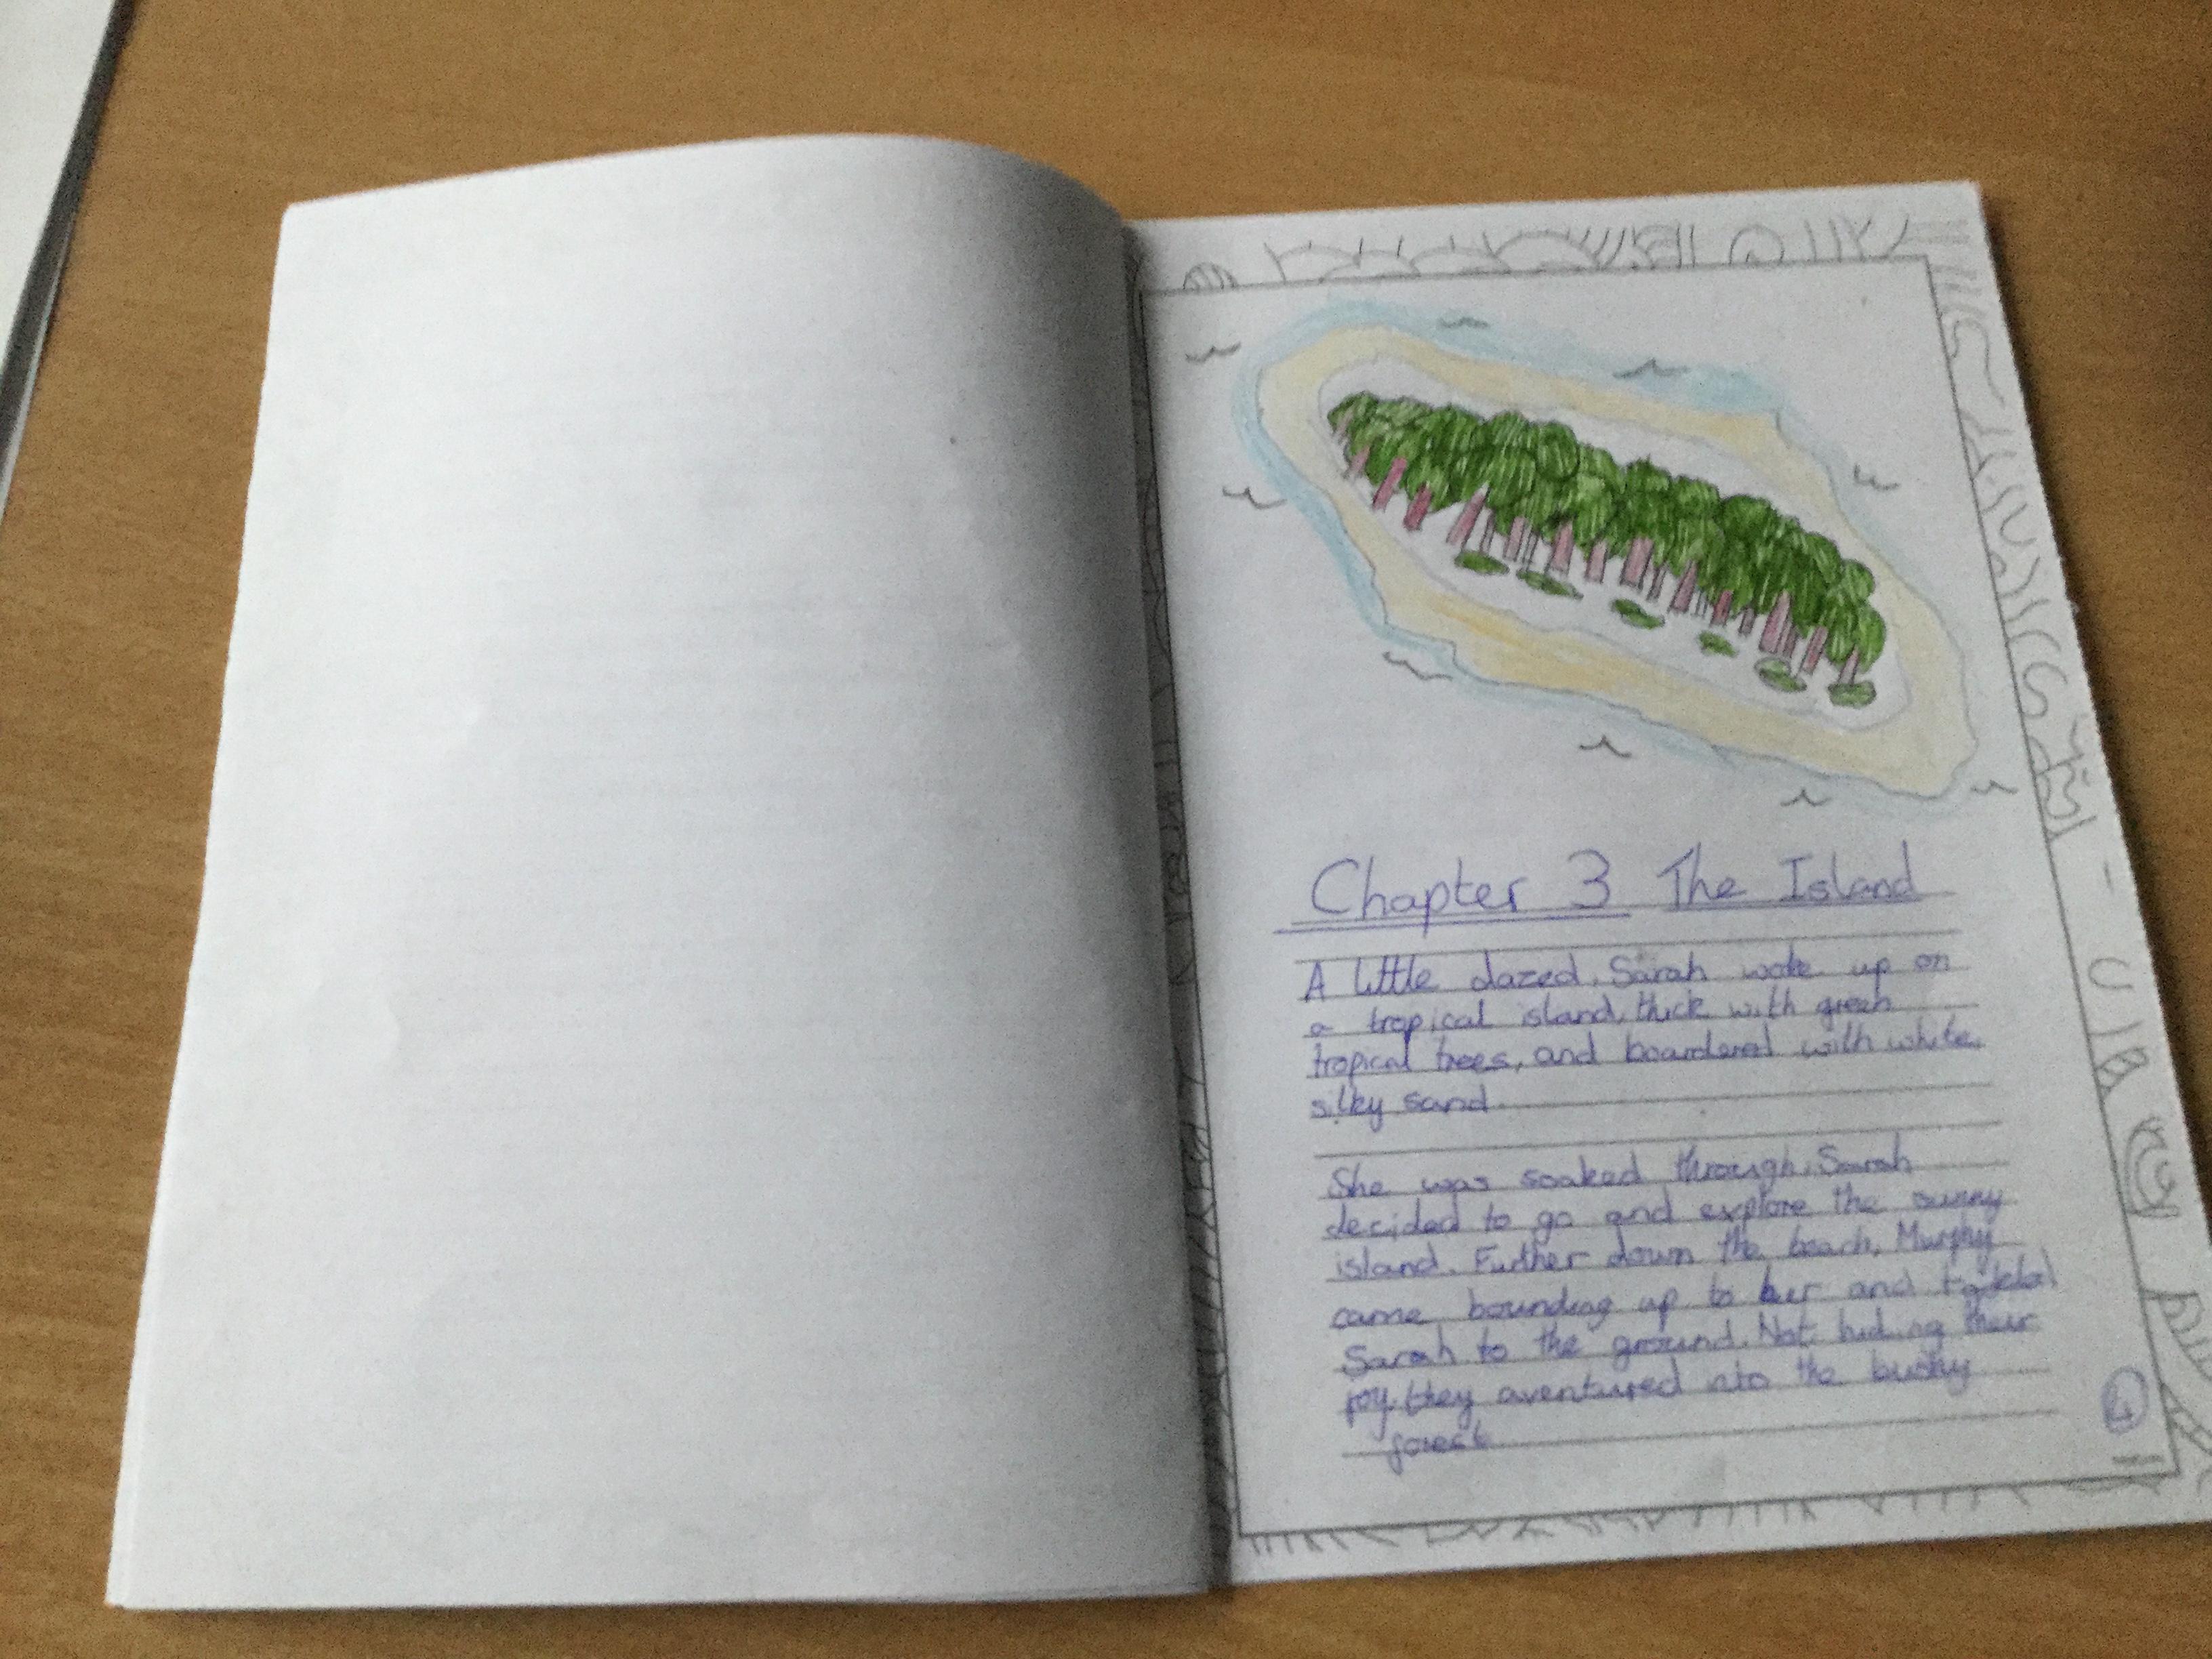 Chapter 3 The Island
A little dazed, Sarah woke up on
a tropical island, thick with green
tropical trees, and boardered with white,
silky sand.
She was soaked through. Sarah
decided to go and explore the sunny
island. Further down the beach, Murphy
came bounding up to her and
Sarah to the ground. Not hiding their
joy, they aventured into the bushy
forest.
4